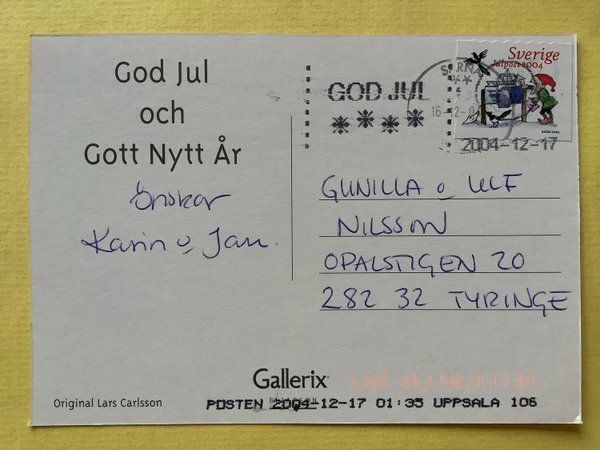 God Jul
och
Gott Nytt År
önskar
Karin o Jan.
GOD JUL
Sverige
Julpost 2004
2004-12-17
GUNILLA o ULF
NILSSON
OPALSTIGEN 20
282 32 TYRINGE
Gallerix
Original Lars Carlsson
POSTEN 2004-12-17 01:35 UPPSALA 106